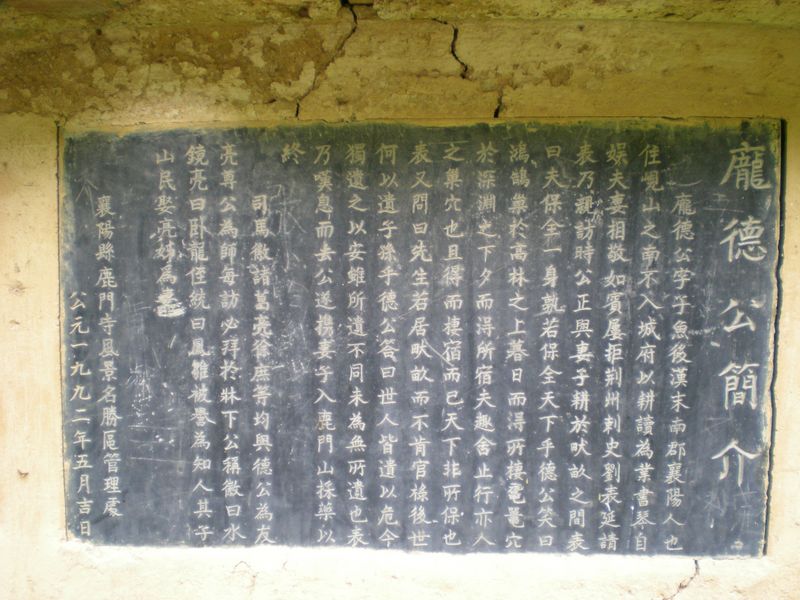 龐德公簡介
龐德公字子魚後漢末南郡襄陽人也
住峴山之南不入城府以耕讀為業書琴自
娛夫妻相敬如賓屢拒荊州刺史劉表延請
表乃親訪時公正與妻子耕於畎畝之間表
曰夫保全一身孰若保全天下乎德公笑曰
鴻鵠巢於高林之上暮日而得所棲黿鼉穴
於深淵之下夕而得所宿夫趣舍止行亦人
之巢穴也且得而棲宿而已天下非所保也
表又問曰先生若居畎畝而不肯官祿後世
何以遺子孫乎德公答曰世人皆遺以危今
獨遺之以安雖所遺不同未為無所遺也表
乃嘆息而去公遂攜妻子入鹿門山採藥以
終
司馬徽諸葛亮徐庶等均與德公為友
亮尊公為師每訪必拜於牀下公稱徽曰水
鏡亮曰臥龍侄統曰鳳雛被譽為知人其子
山民娶亮姊為
襄陽縣鹿門寺風景名勝區管理處
公元一九九二年五月吉日